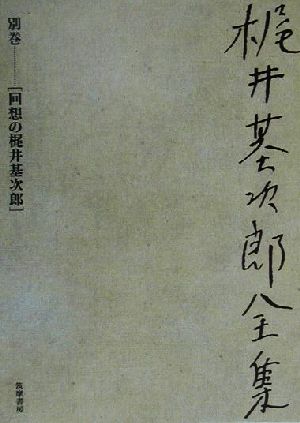 梶井基次郎全集
別巻………[回想の梶井基次郎]
筑摩書房